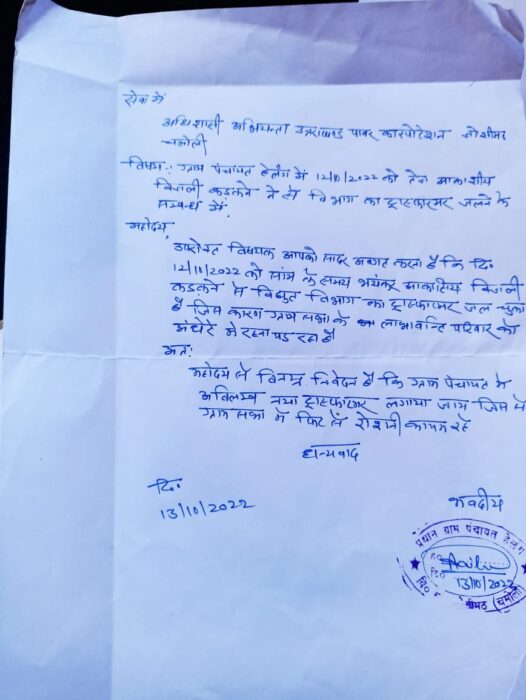 सेवा में
अधिशासी अभियन्ता उत्तराखण्ड पावर कारपोरेशन जोशीमठ
चमोली
विषय: ग्राम पंचायत हेलंग में 12/10/2022 को तेज आकाशीय
बिजली कडकने से विभाग का ट्रांसफारमर जलने के
सम्बन्ध में.
महोदय,
उपरोक्त विषयक आपको सादर अवगत करना है कि दि.
12/10/2022 को सांय के समय भयंकर आकाशिय बिजली
कडकने से विद्युत विभाग का ट्रांसफारमर जल चुका
है जिस कारण ग्राम सभा के लाभान्वित परिवार को
अंधेरे में रहना पड रहा है
अतः
महोदय से विनम्र निवेदन है कि ग्राम पंचायत में
अविलम्ब नया ट्रांसफारमर लगाया जाय जिस से
ग्राम सभा में फिर से रोशनी कायम रहे
धन्यवाद
दि.
13/10/2022
भवदीय
प्रधान ग्राम पंचायत हेलंग
13/10/2022
वि०
(चमोली)